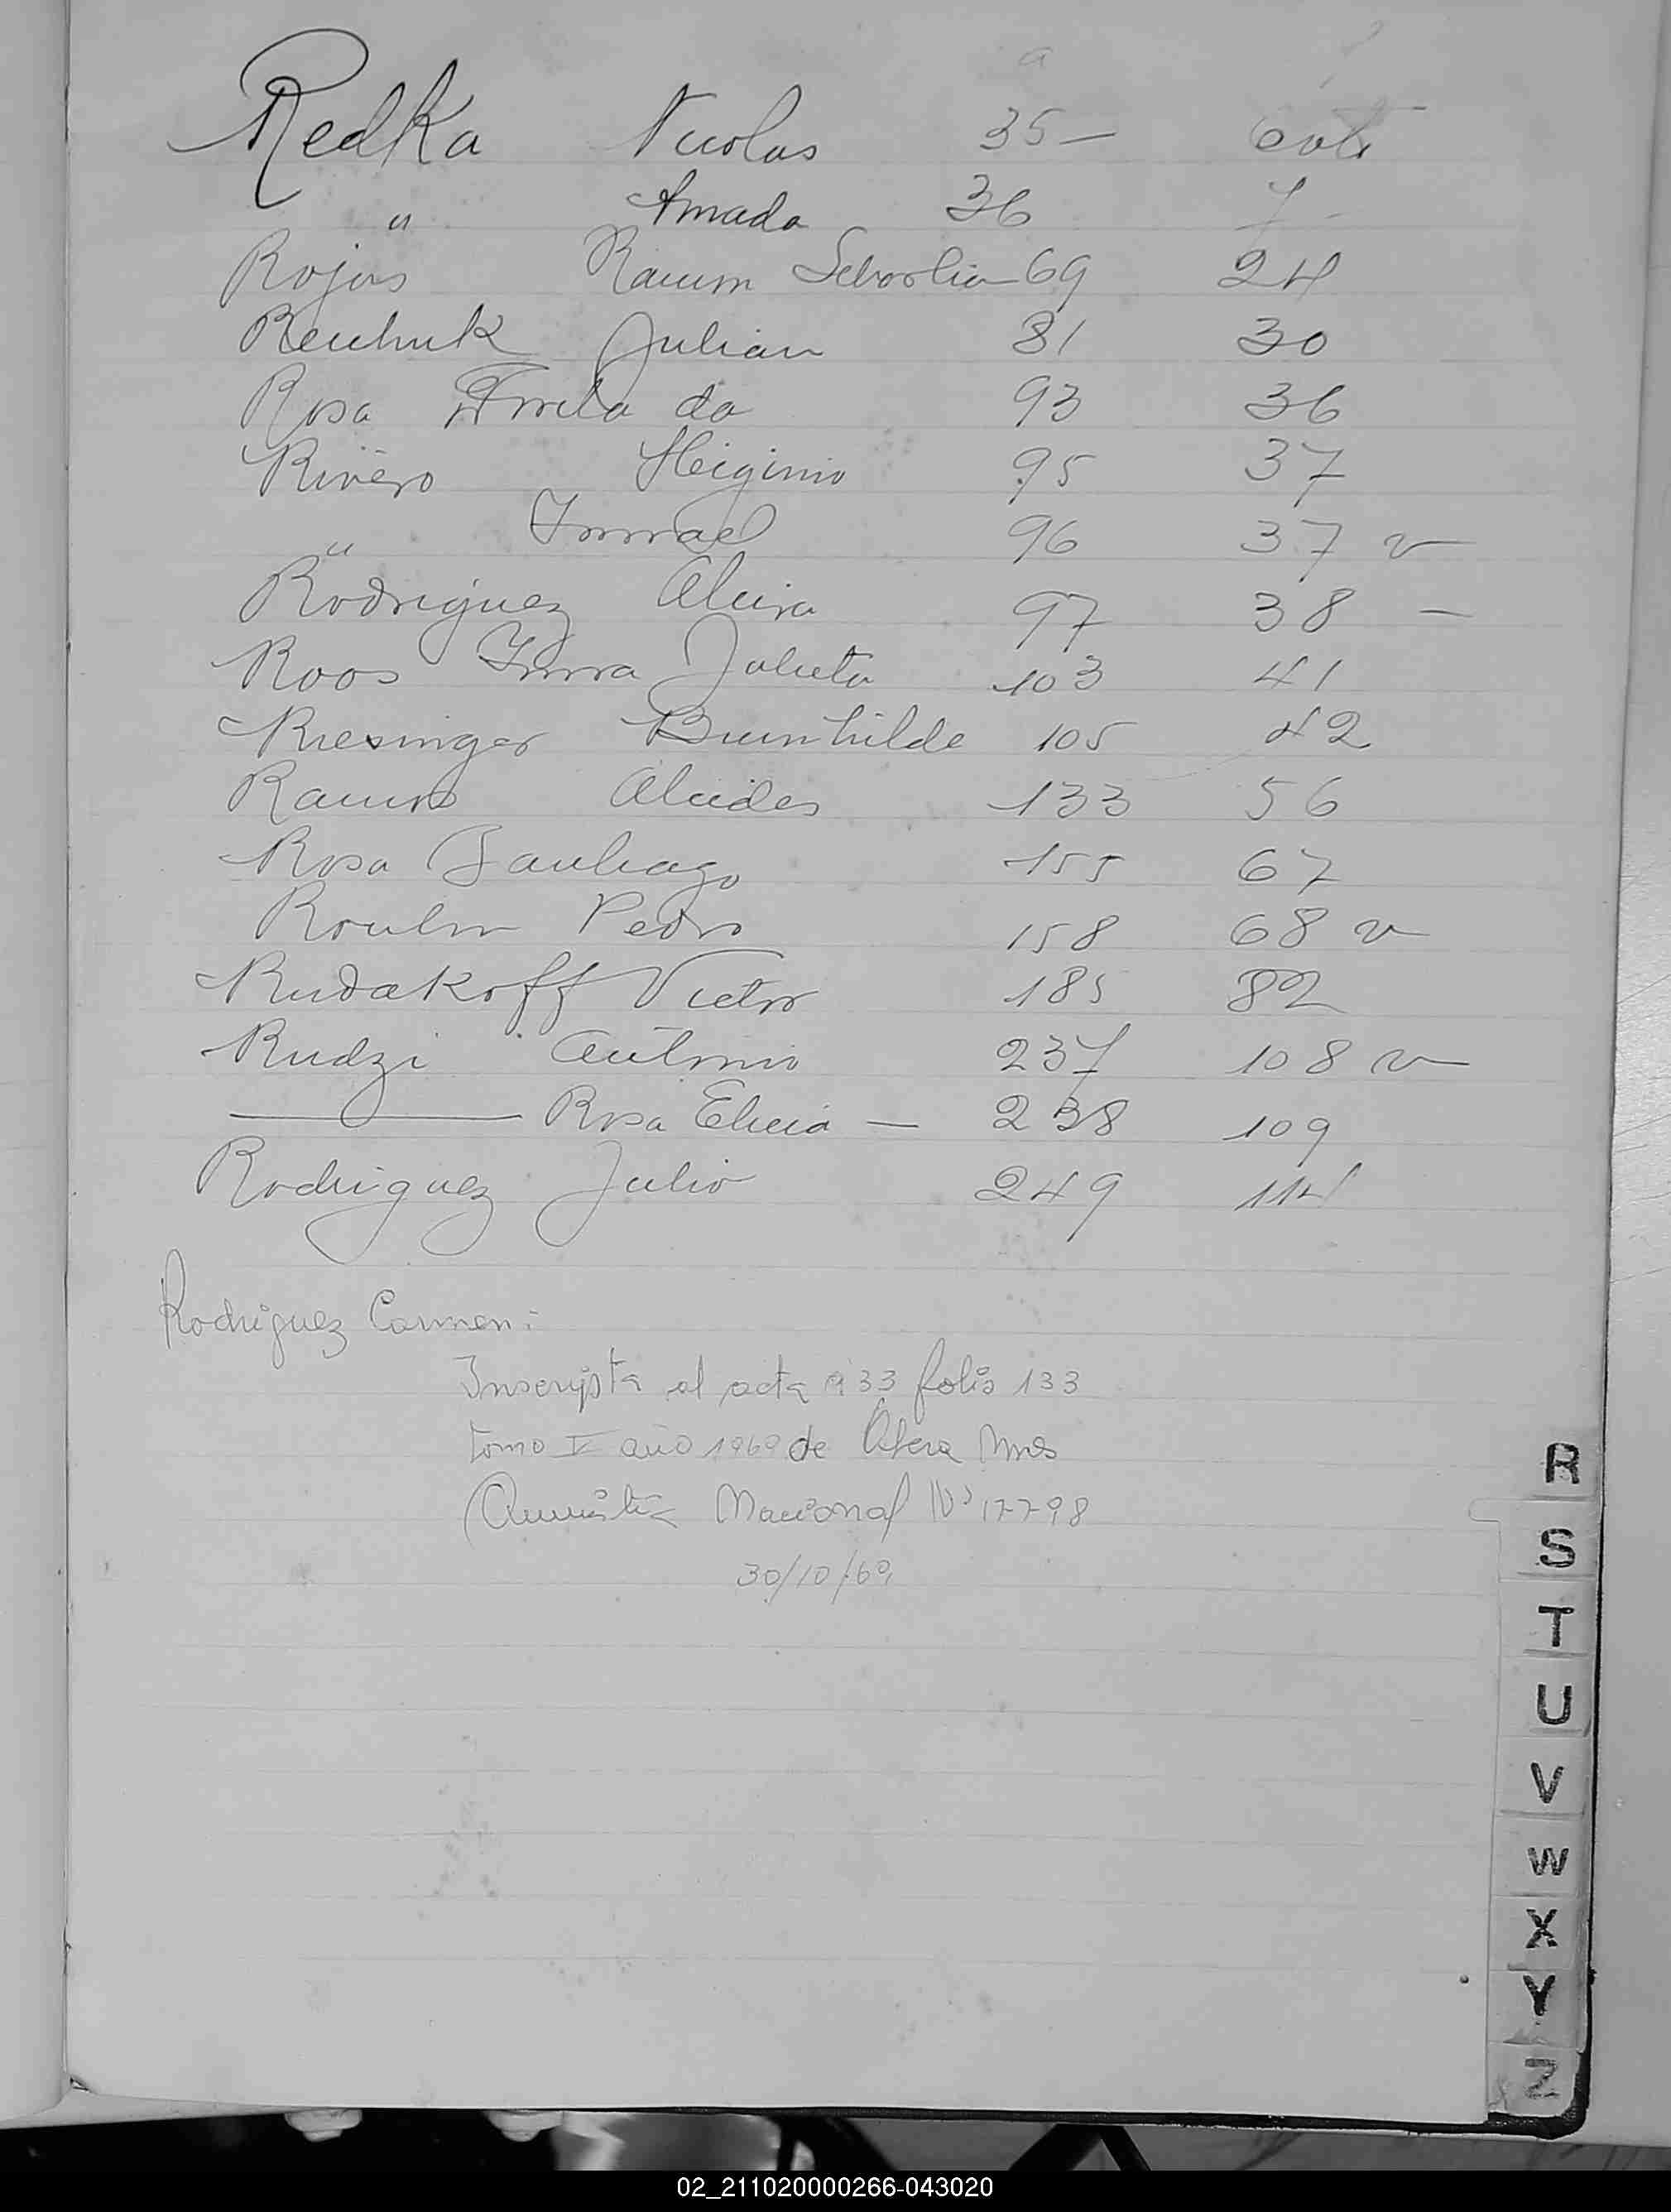 Redka Nicolas 35 —
" Amada 36 7 -
Rojas Ramm Sebastian 69 24
Julian 81 30
Rosa da 93 36
Rivero Heiginio 95 37
" Ismael 96 37 v
Rodriguez Alcira 97 38 —
Roos Irma Julieta 103 41
Riesinger Brunhilde 105 42
Ramos Alcides 133 56
Rosa Santiago 155 67
Pedro 158 68 v
Rudakoff Victor 185 82
Rudzi Antonio 237 108 v
— Rosa Elicia — 238 109
Rodriguez Julio 249 114
Rodriguez Carmen:
Inscripta al acta 933 folio 133
tomo V año 1969 de Obera Mnes
Amnistia Nacional Nº 17798
30/10/69
R
S
T
U
V
W
X
Y
Z
02_211020000266-043020